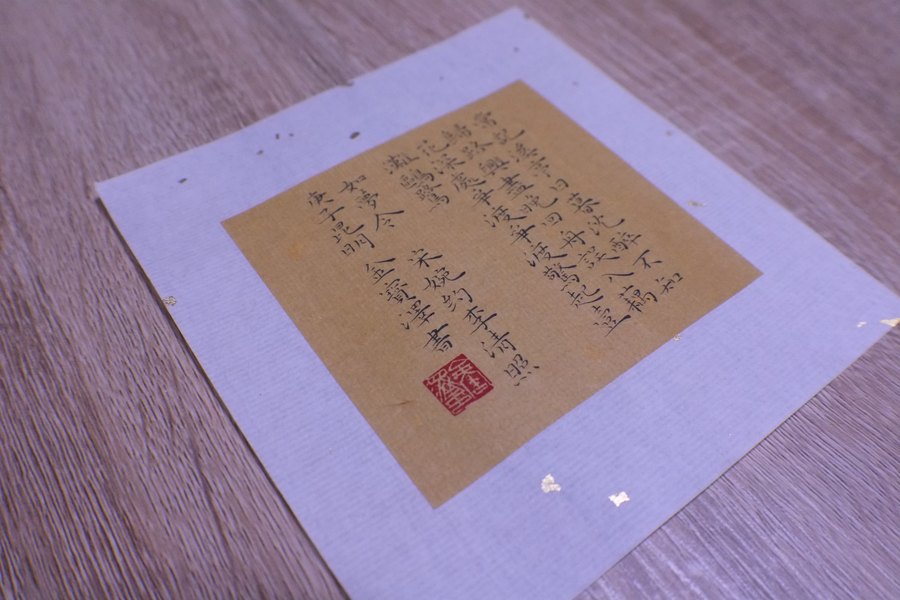 嘗記溪亭日莫沈醉不知
歸路興盡晚回舟誤入藕
花深處爭渡爭渡驚起壹
灘鷗鷺
如夢令 宋婉約李清照
庚子 金寶澤書